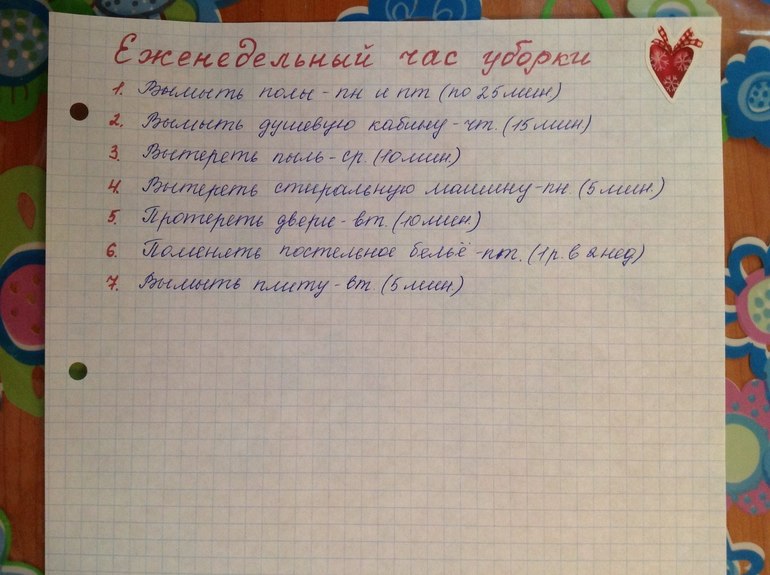 Еженедельный час уборки
1. Вымыть полы - пн и пт (по 25 мин)
2. Вымыть душевую кабину - чт. (15 мин)
3. Вытереть пыль - ср. (10 мин.)
4. Вытереть стиральную машину - пн. (5 мин.)
5. Протереть двери - вт. (10 мин.)
6. Поменять постельное бельё - пт. (1 р. в 2 нед)
7. Вымыть плиту - вт. (5 мин.)